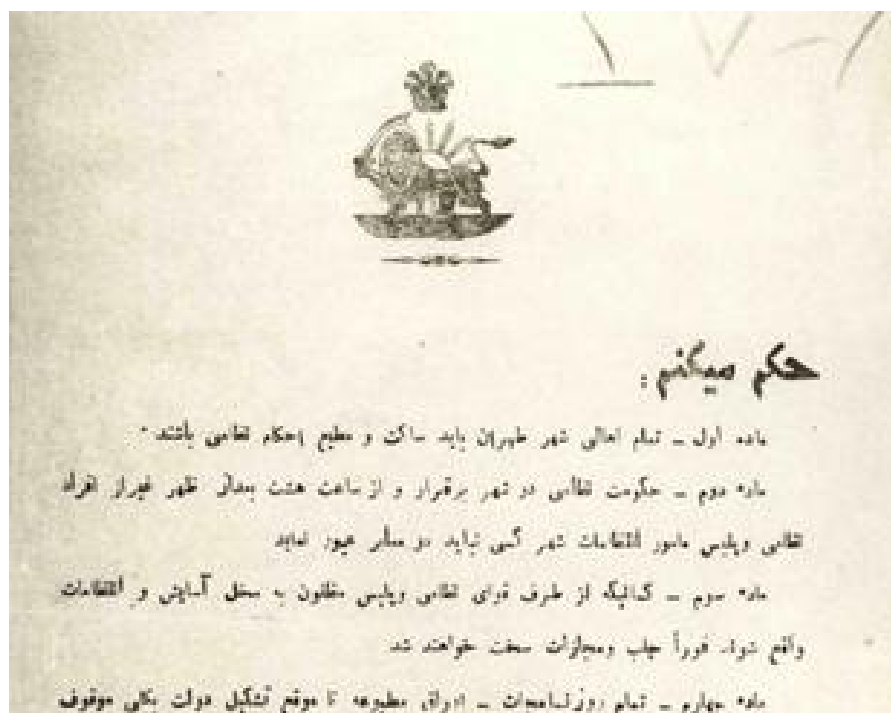 حکم میکنم :
ماده اول – تمام اهالی شهر طهران باید ساکت و مطیع احکام نظامی باشند .
ماده دوم – حکومت نظامی در شهر برقرار و از ساعت هشت بعداز ظهر غیراز افراد
نظامی وپلیس مامور انتظامات شهر کسی نباید در معابر عبور نماید
ماده سوم – کسانیکه از طرف قوای نظامی وپلیس مظنون به مخل آسایش و انتظامات
واقع شوند فوراً جلب ومجازات سخت خواهند شد
ماده چهارم – تمام روزنامجات – اوراق مطبوعه تا موقع تشکیل دولت بکلی موقوف